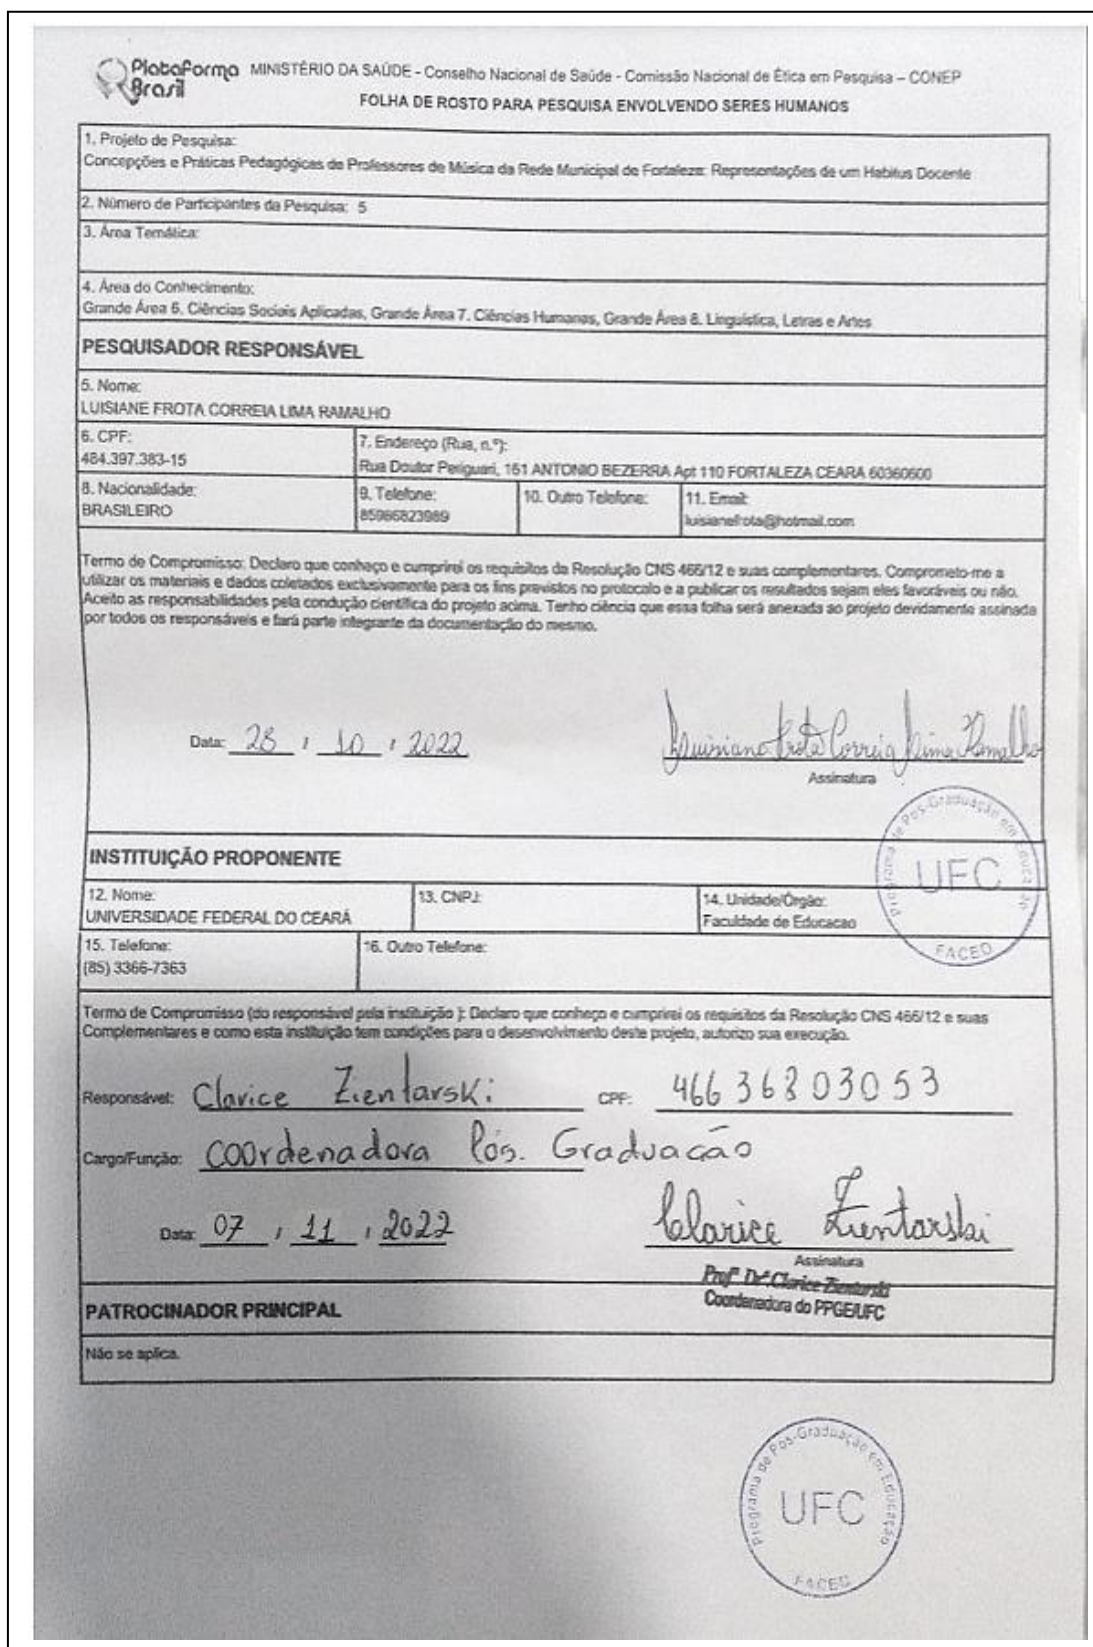 Plataforma Brasil
MINISTÉRIO DA SAÚDE - Conselho Nacional de Saúde - Comissão Nacional de Ética em Pesquisa – CONEP
FOLHA DE ROSTO PARA PESQUISA ENVOLVENDO SERES HUMANOS
1. Projeto de Pesquisa:
Concepções e Práticas Pedagógicas de Professores de Música da Rede Municipal de Fortaleza: Representações de um Habitus Docente
2. Número de Participantes da Pesquisa: 5
3. Área Temática:
4. Área do Conhecimento:
Grande Área 6. Ciências Sociais Aplicadas, Grande Área 7. Ciências Humanas, Grande Área 8. Linguística, Letras e Artes
PESQUISADOR RESPONSÁVEL
5. Nome:
LUISIANE FROTA CORREIA LIMA RAMALHO
6. CPF:
484.397.383-15
7. Endereço (Rua, n.º):
Rua Doutor Periguari, 151 ANTONIO BEZERRA Apt 110 FORTALEZA CEARA 60360600
8. Nacionalidade:
BRASILEIRO
9. Telefone:
85986823989
10. Outro Telefone:
11. Email:
luisianefrota@hotmail.com
Termo de Compromisso: Declaro que conheço e cumprirei os requisitos da Resolução CNS 466/12 e suas complementares. Comprometo-me a
utilizar os materiais e dados coletados exclusivamente para os fins previstos no protocolo e a publicar os resultados sejam eles favoráveis ou não.
Aceito as responsabilidades pela condução científica do projeto acima. Tenho ciência que essa folha será anexada ao projeto devidamente assinada
por todos os responsáveis e fará parte integrante da documentação do mesmo.
Data: 28 / 10 / 2022
Luisiane Frota Correia Lima Ramalho
Assinatura
Programa de Pós-Graduação em Educação
UFC
FACED
INSTITUIÇÃO PROPONENTE
12. Nome:
UNIVERSIDADE FEDERAL DO CEARÁ
13. CNPJ:
14. Unidade/Órgão:
Faculdade de Educacao
15. Telefone:
(85) 3366-7363
16. Outro Telefone:
Termo de Compromisso (do responsável pela instituição ): Declaro que conheço e cumprirei os requisitos da Resolução CNS 466/12 e suas
Complementares e como esta instituição tem condições para o desenvolvimento deste projeto, autorizo sua execução.
Responsável: Clarice Zientarski CPF: 46636803053
Cargo/Função: Coordenadora Pós. Graduação
Data: 07 / 11 / 2022
Clarice Zientarski
Assinatura
Profª Drª Clarice Zientarski
Coordenadora do PPGE/UFC
PATROCINADOR PRINCIPAL
Não se aplica.
Programa de Pós-Graduação em Educação
UFC
FACED